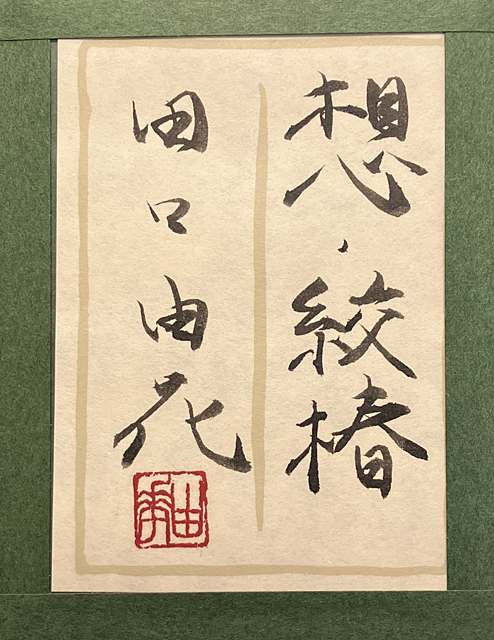 想・絞椿
田口由花